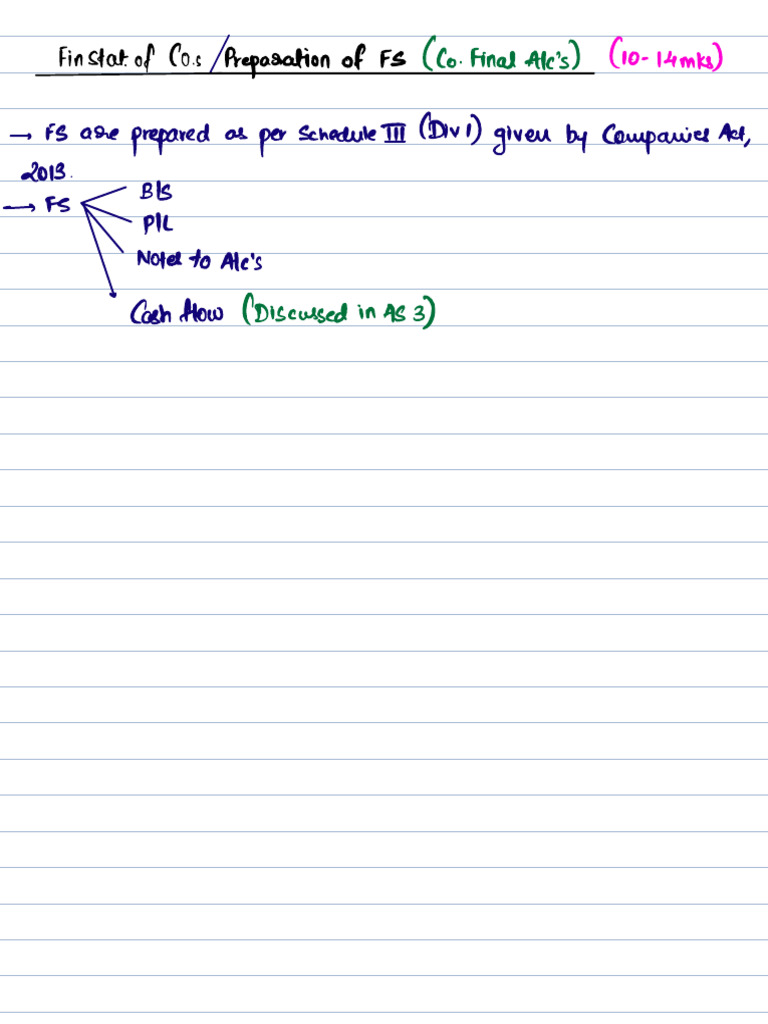 Fin stat. of Co.s / Preparation of FS (Co. Final A/c's) (10-14mks)
→ FS are prepared as per Schedule III (Div I) given by Companies Act,
2013.
→ FS
B/S
P/L
Notes to A/c's
Cash flow (Discussed in AS 3)